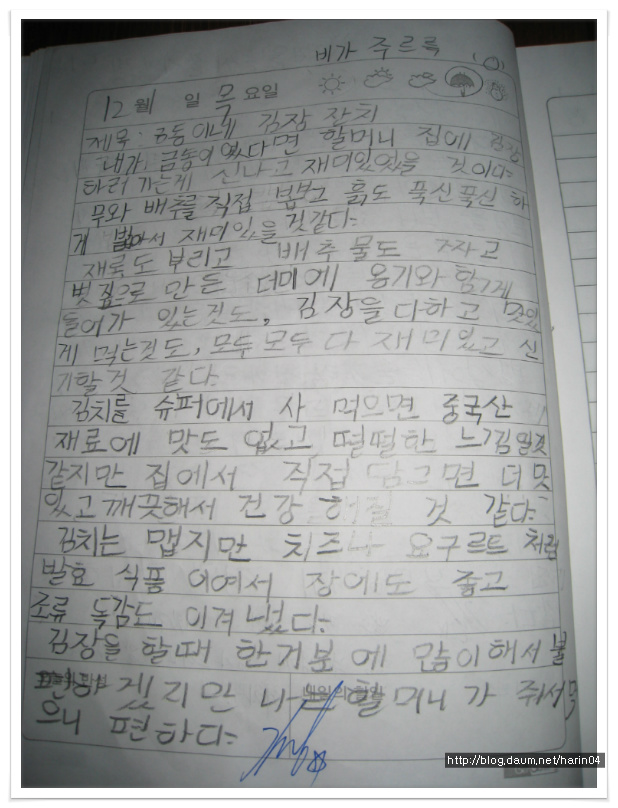 비가 주르륵
12월 일 목요일
제목: 금동이네 김장 잔치
내가 금동이 였다면 할머니 집에 김장
하러 가는게 신나고 재미있었을 것이다.
무와 배추를 직접 뽑고 흙도 푹신푹신 하
게 밟아서 재미있을 것같다.
재료도 부리고 배추 물도
볏짚으로 만든 더미에 옹기와 함께
들어가 있는것도, 김장을 다하고 맛있
게 먹는것도, 모두 모두 다 재미있고 신
기할것 같다.
김치를 슈퍼에서 사 먹으면 중국산
재료에 맛도 없고 떨떨한 느낌일것
같지만 집에서 직접 담그면 더 맛
있고 깨끗해서 건강 해질 것 같다.
김치는 맵지만 치즈나 요구르트 처럼
발효 식품 이여서 장에도 좋고
조류 독감도 이겨 냈다.
김장을 할때 한거분에 많이해서 불
겠지만 나는 할머니가 줘서 먹
으니 편하다.
http://blog.daum.net/harin04